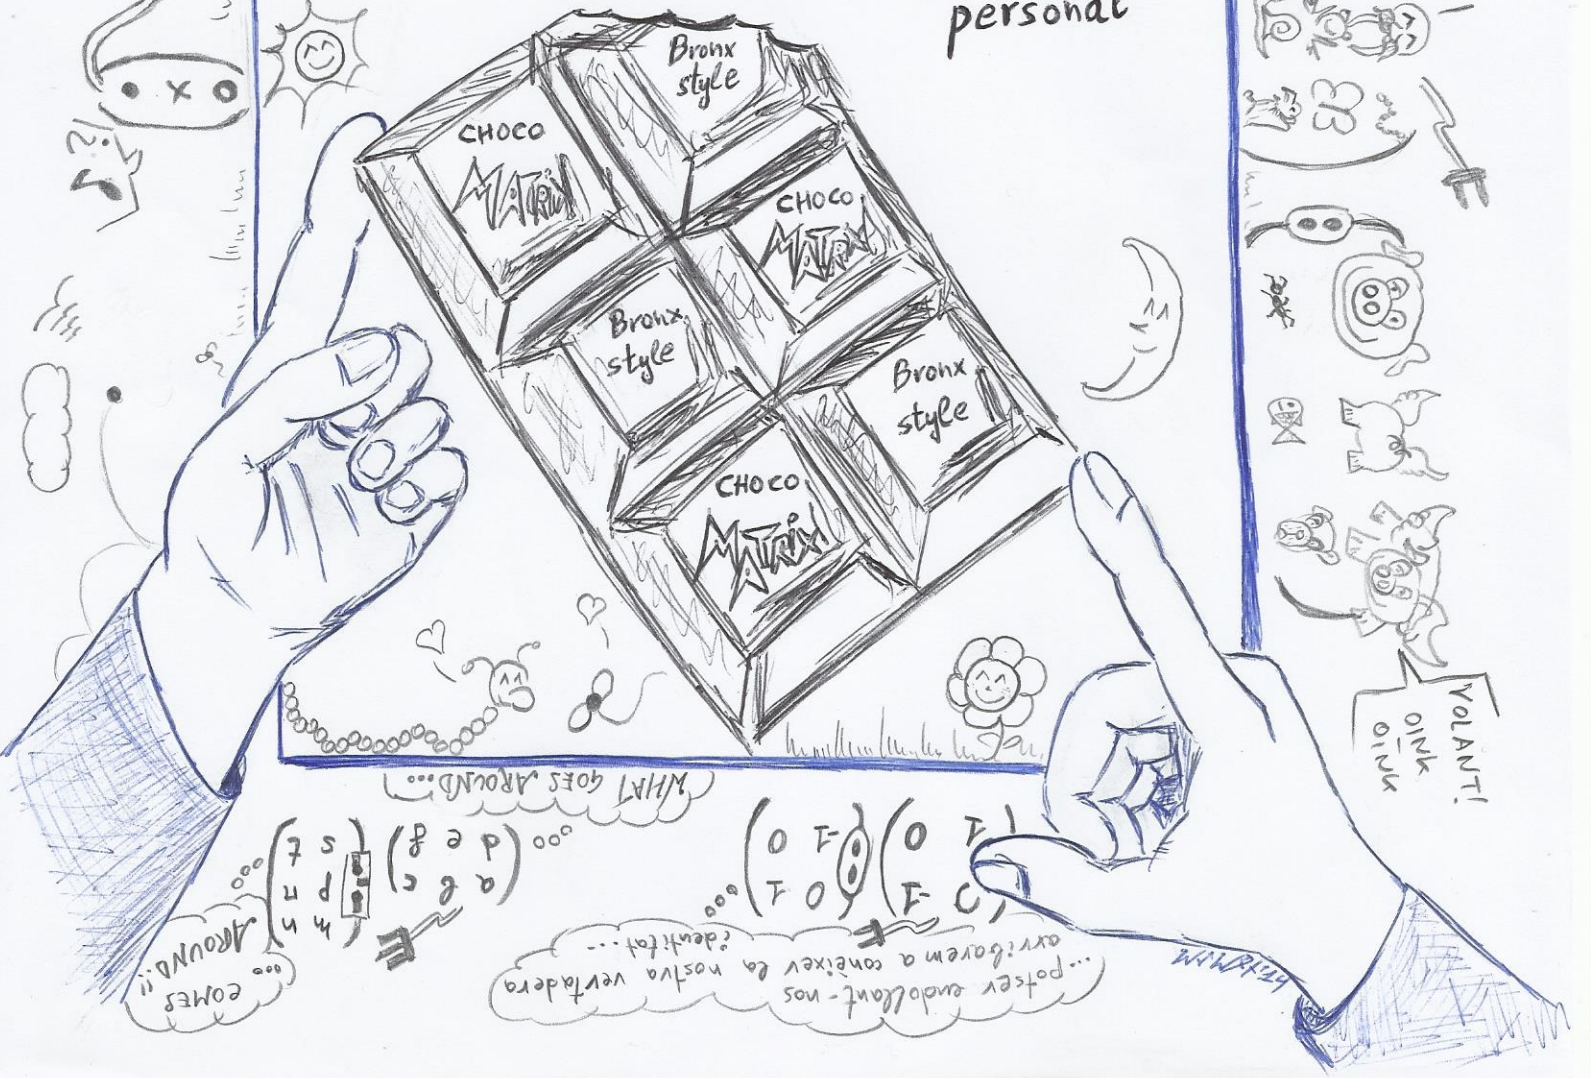 personal
Bronx
style
CHOCO
MATRIX
CHOCO
MATRIX
Bronx
style
Bronx
style
CHOCO
MATRIX
VOLANT!
OINK
OINK
WHAT GOES AROUND...
...COMES
AROUND!!
a b c
d e f
m n
p
s t
0 -1
1 0
0 1
-1 0
...potser endollant-nos
arribarem a conèixer la nostra vertadera
identitat...